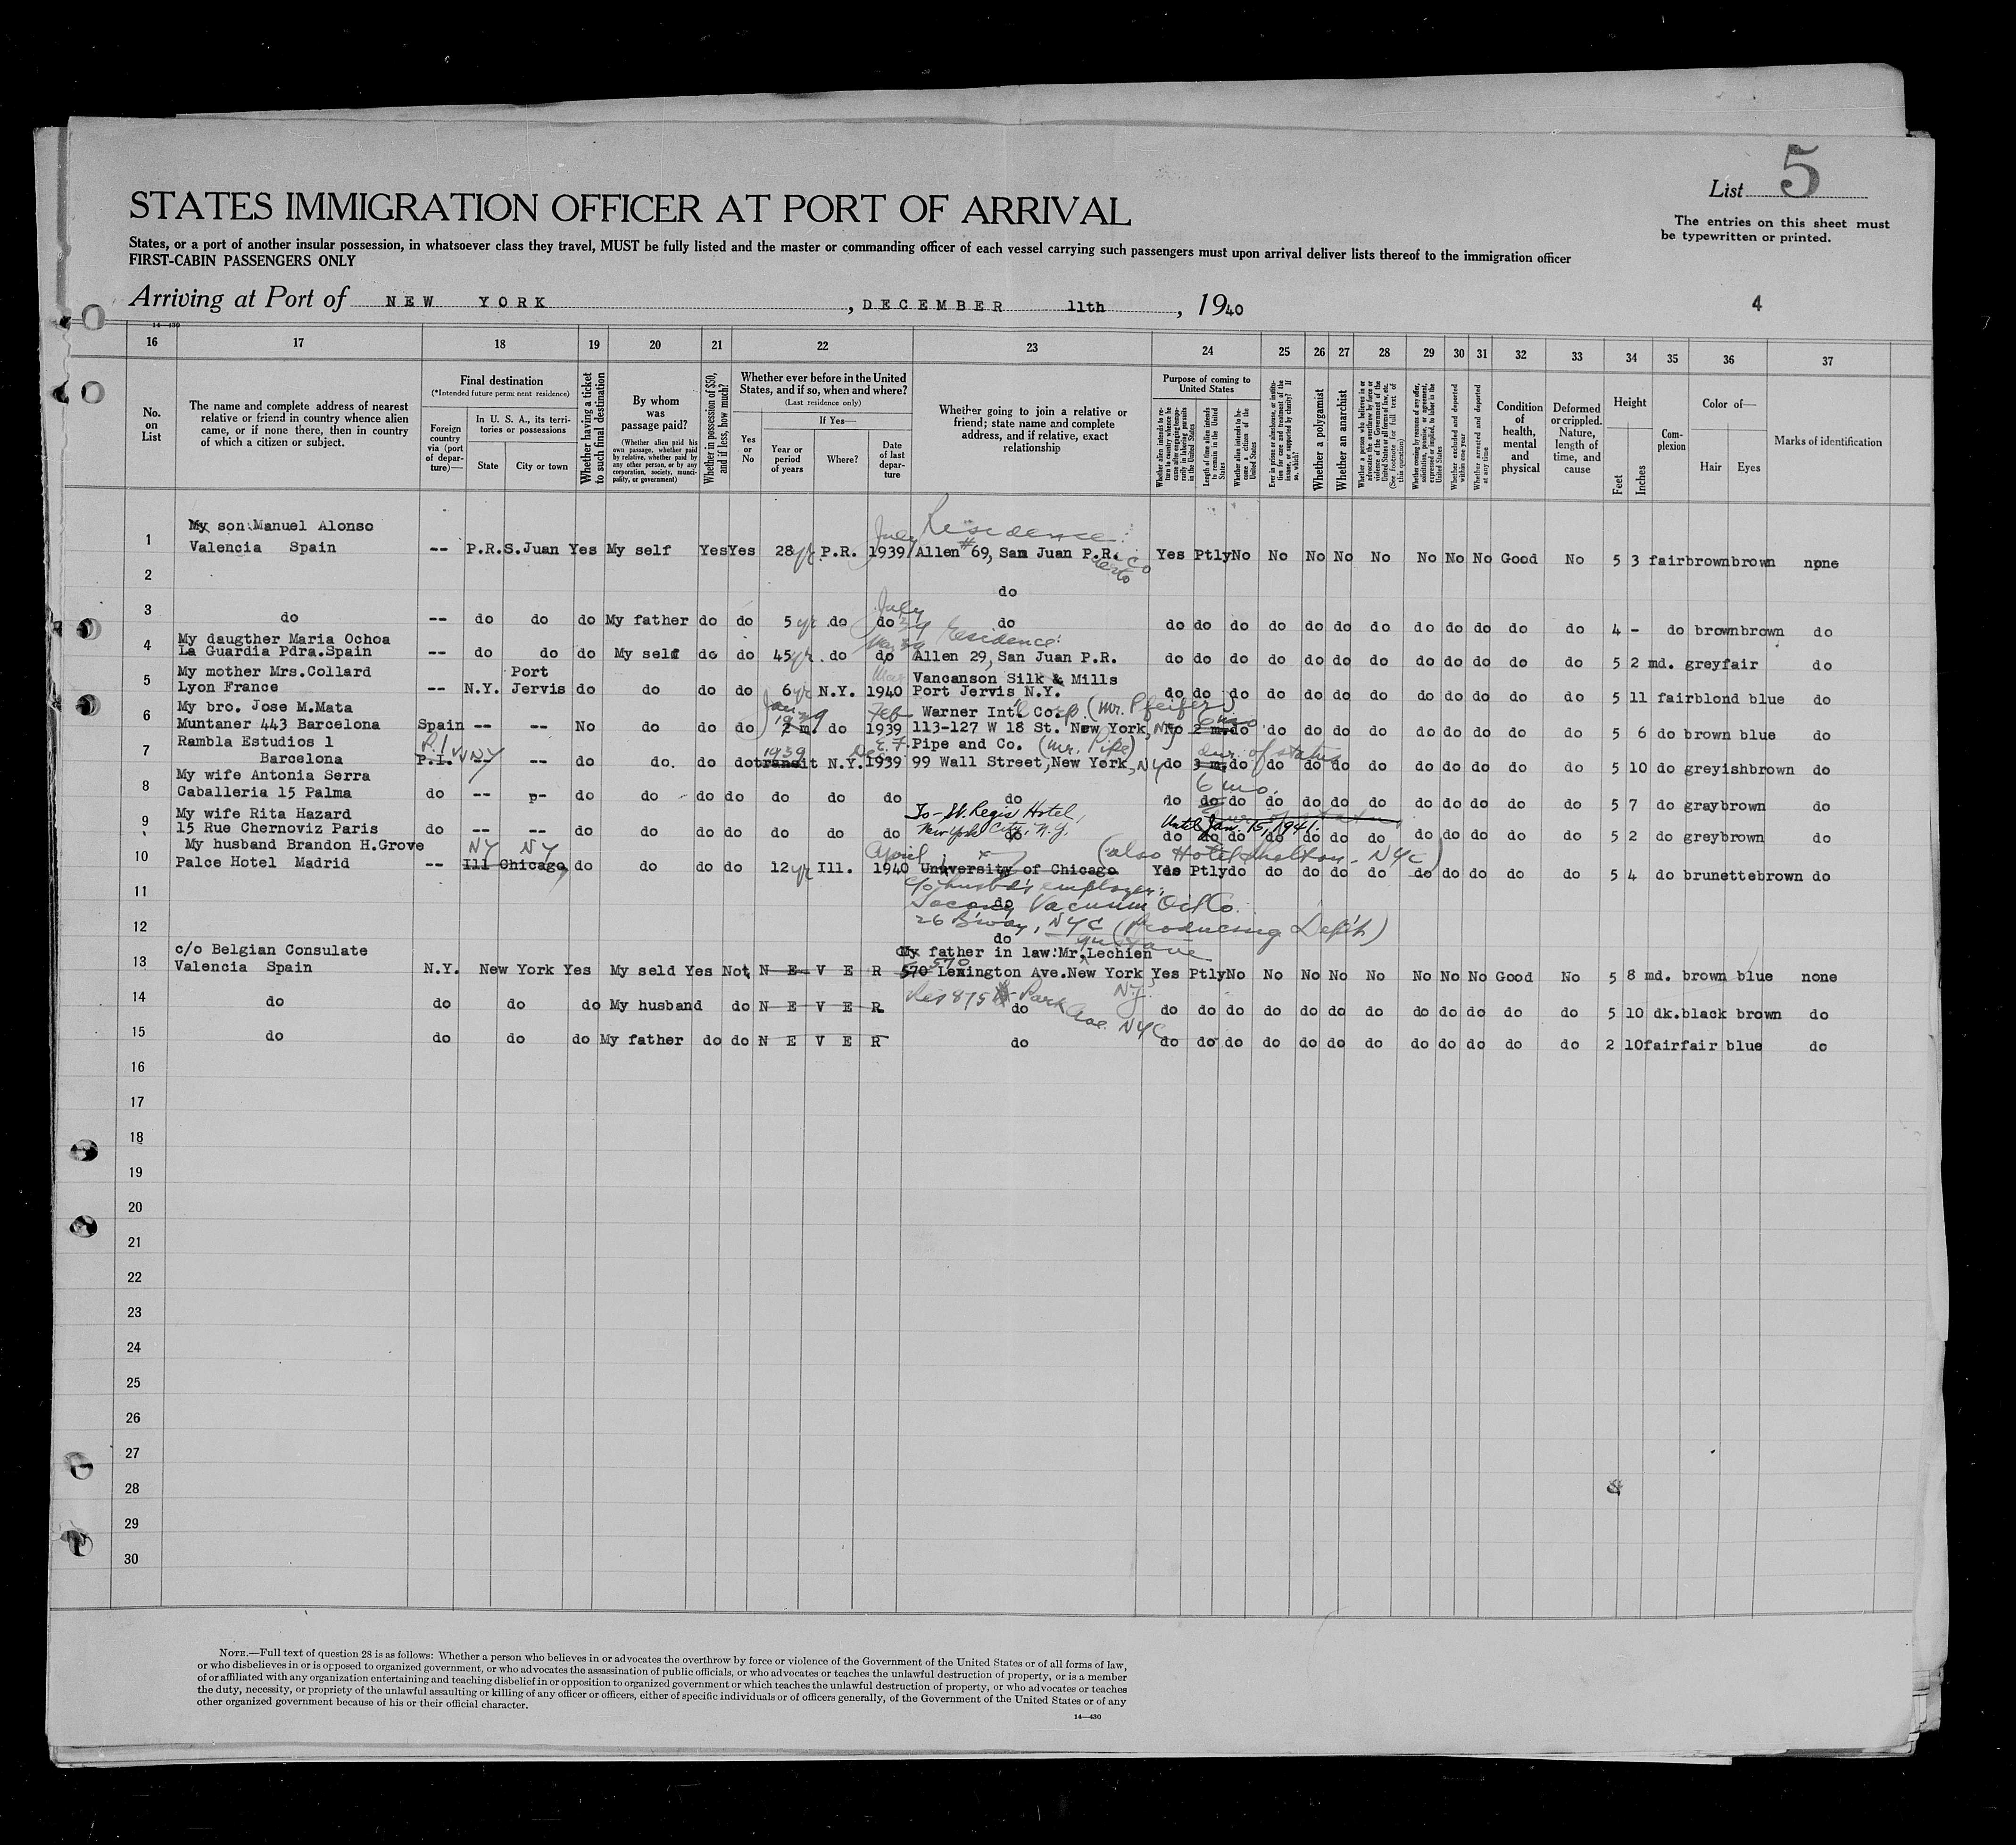 List 5
STATES IMMIGRATION OFFICER AT PORT OF ARRIVAL
The entries on this sheet must
be typewritten or printed.
States, or a port of another insular possession, in whatsoever class they travel, MUST be fully listed and the master or commanding officer of each vessel carrying such passengers must upon arrival deliver lists thereof to the immigration officer
FIRST-CABIN PASSENGERS ONLY
Arriving at Port of NEW YORK, DECEMBER 11th, 1940
4
14—430
16 17 18 19 20 21 22 23 24 25 26 27 28 29 30 31 32 33 34 35 36 37
No. on List
The name and complete address of nearest relative or friend in country whence alien came, or if none there, then in country of which a citizen or subject.
Final destination
(*Intended future permanent residence)
Foreign country via (port of departure)—
In U. S. A., its territories or possessions
State
City or town
Whether having a ticket to such final destination
By whom was passage paid?
(Whether alien paid his own passage, whether paid by relative, whether paid by any other person, or by any corporation, society, municipality, or government)
Whether in possession of $50, and if less, how much?
Whether ever before in the United States, and if so, when and where?
(Last residence only)
Yes or No
If Yes—
Year or period of years
Where?
Date of last departure
Whether going to join a relative or friend; state name and complete address, and if relative, exact relationship
Purpose of coming to United States
Whether alien intends to return to country whence he came after engaging temporarily in laboring pursuits in the United States
Length of time alien intends to remain in the United States
Whether alien intends to become a citizen of the United States
Ever in prison or almshouse, or institution for care and treatment of the insane, or supported by charity? If so, which?
Whether a polygamist
Whether an anarchist
Whether a person who believes in or advocates the overthrow by force or violence of the Government of the United States or all forms of law, etc. (See footnote for full text of this question)
Whether coming by reason of any offer, solicitation, promise, or agreement, expressed or implied, to labor in the United States
Whether excluded and deported within one year
Whether arrested and deported at any time
Condition of health, mental and physical
Deformed or crippled. Nature, length of time, and cause
Height
Feet
Inches
Complexion
Color of—
Hair Eyes
Marks of identification
July Residence:
My son Manuel Alonso
1 Valencia Spain -- P.R. S.Juan Yes My self Yes Yes 28 yr P.R. 1939 Allen #69, San Juan P.R. Yes Ptly No No No No No No No No Good No 5 3 fair brown brown none
2 do
July
3 do -- do do do My father do do 5 yr do do do do do do do do do do do do do do do 4 - do brown brown do
Residence:
My daugther Maria Ochoa
4 La Guardia Pdra.Spain -- do do do My self do do 45 yr. do do Allen 29, San Juan P.R. do do do do do do do do do do do do 5 2 md. grey fair do
My mother Mrs.Collard Port Vancanson Silk & Mills
5 Lyon France -- N.Y. Jervis do do do do 6 yr N.Y. 1940 Port Jervis N.Y. do do do do do do do do do do do do 5 11 fair blond blue do
My bro. Jose M.Mata Feb Warner Int'l Corp. (Mr. Pfeifer) 6 mo
6 Muntaner 443 Barcelona Spain -- -- No do do do 2 m. do 1939 113-127 W 18 St. New York, NY No 2 m. do do do do do do do do do do 5 6 do brown blue do
Rambla Estudios 1 1939 Dec. Pipe and Co. (Mr. Pipe) dur. of status
7 Barcelona P.I. NY -- do do. do do transit N.Y. 1939 99 Wall Street, New York, NY do 3 m. do do do do do do do do do do 5 10 do greyish brown do
My wife Antonia Serra 6 mo.
8 Caballeria 15 Palma do -- -- do do do do do do do do do do do do do do do do do do do do 5 7 do gray brown do
My wife Rita Hazard To - St. Regis Hotel, New York City, N.Y. Until Jan. 15, 1941.
9 15 Rue Chernoviz Paris do -- -- do do do do do do do do do do do do do do do do do do do do 5 2 do grey brown do
My husband Brandon H.Grove NY NY April (also Hotel Shelton - NYC)
10 Palce Hotel Madrid -- Ill Chicago do do do do 12 yr Ill. 1940 University of Chicago Yes Ptly do do do do do do do do do do 5 4 do brunette brown do
c/o husbd's employer:
11 do Socony Vacuum Oil Co.
26 B'way, NYC (Producing Dep't)
12 do
c/o Belgian Consulate My father in law:Mr. Gustave Lechien
13 Valencia Spain N.Y. New York Yes My seld Yes Not NEVER 570 Lexington Ave.New York N.Y. Yes Ptly No No No No No No No No Good No 5 8 md. brown blue none
Res 875 Park Ave. NYC
14 do do do do My husband do NEVER do do do do do do do do do do do do do 5 10 dk. black brown do
15 do do do do My father do do NEVER do do do do do do do do do do do do do 2 10 fair fair blue do
16
17
18
19
20
21
22
23
24
25
26
27
28
29
30
NOTE.—Full text of question 28 is as follows: Whether a person who believes in or advocates the overthrow by force or violence of the Government of the United States or of all forms of law,
or who disbelieves in or is opposed to organized government, or who advocates the assassination of public officials, or who advocates or teaches the unlawful destruction of property, or is a member
of or affiliated with any organization entertaining and teaching disbelief in or opposition to organized government or which teaches the unlawful destruction of property, or who advocates or teaches
the duty, necessity, or propriety of the unlawful assaulting or killing of any officer or officers, either of specific individuals or of officers generally, of the Government of the United States or of any
other organized government because of his or their official character.
14—430